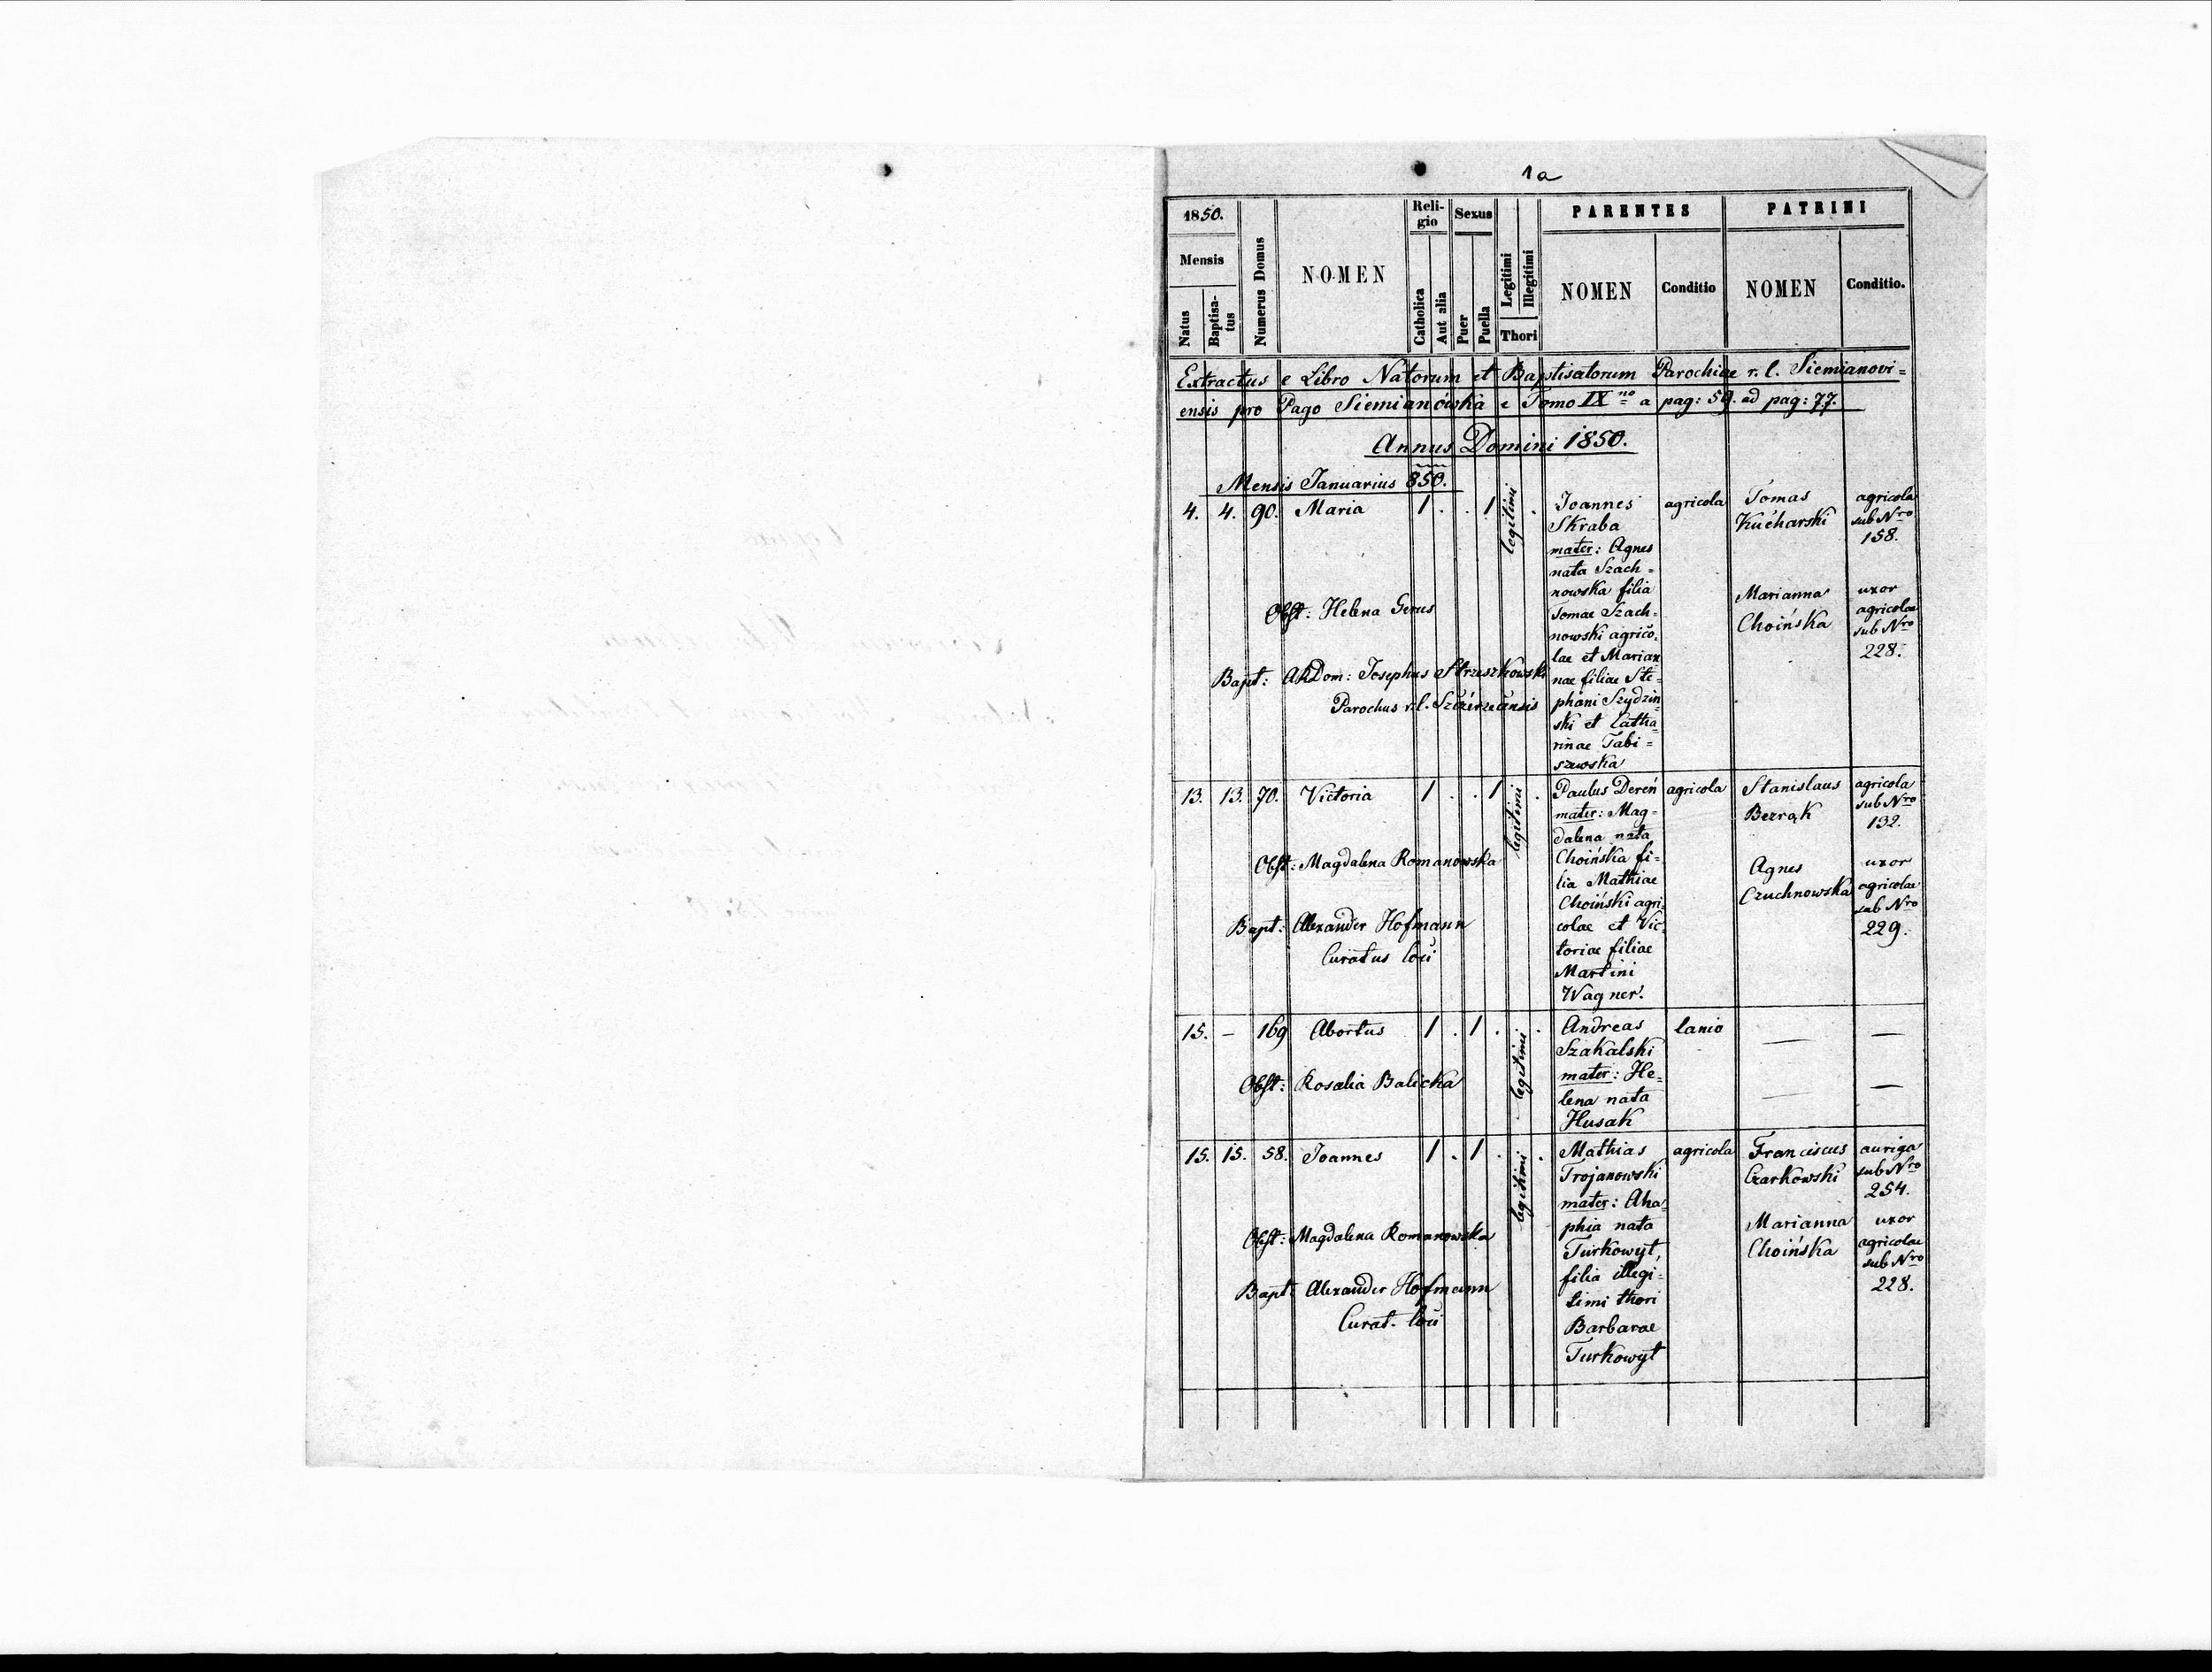 1a
1850.
Mensis
Natus
Baptisa-
tus
Numerus Domus
NOMEN
Reli-
gio
Catholica
Aut alia
Sexus
Puer
Puella
Legitimi
Illegitimi
Thori
PARENTES
NOMEN
Conditio
PATRINI
NOMEN
Conditio.
Extractus e Libro Natorum et Baptisatorum Parochiae r. l. Siemianovi=
ensis pro Pago Siemianówka e Tomo IX no a pag: 59. ad pag: 77.
Annus Domini 1850.
Mensis Januarius 850.
4. 4. 90. Maria 1 . . 1 legitimi .
Obst: Helena Gerus
Bapt: ARDom: Josephus Strzeszkowski
Parochus r. l. Szczerzecensis
Joannes
Skraba
mater: Agnes
nata Szach=
nowska filia
Tomae Szach=
nowski agrico=
lae et Marian
nae filiae Ste=
phani Szydzin=
ski et Catha=
rinae Tabi=
szewska
agricola
Tomas
Kucharski
Marianna
Choińska
agricola
sub Nro
158.
uxor
agricolae
sub Nro
228.
13. 13. 70. Victoria 1 . . 1 legitimi .
Obst: Magdalena Romanowska
Bapt: Alexander Hofmann
Curatus loci
Paulus Dereń
mater: Mag=
dalena nata
Choińska fi=
lia Mathiae
Choiński agri=
colae et Vic=
toriae filiae
Martini
Wagner.
agricola
Stanislaus
Bezrąk
Agnes
Czuchnowska
agricola
sub Nro
132.
uxor
agricolae
sub Nro
229.
15. – 169 Abortus 1 . 1 . legitimi .
Obst: Rosalia Balicka
Andreas
Szakalski
mater: He=
lena nata
Husak
lanio
—
—
—
—
15. 15. 58. Joannes 1 . 1 . legitimi .
Obst: Magdalena Romanowska
Bapt: Alexander Hofmann
Curat. loci
Mathias
Trojanowski
mater: Aha=
phia nata
Turkowyt,
filia illegi=
timi thori
Barbarae
Turkowyt
agricola
Franciscus
Czarkowski
Marianna
Choińska
auriga
sub Nro
254.
uxor
agricolae
sub Nro
228.